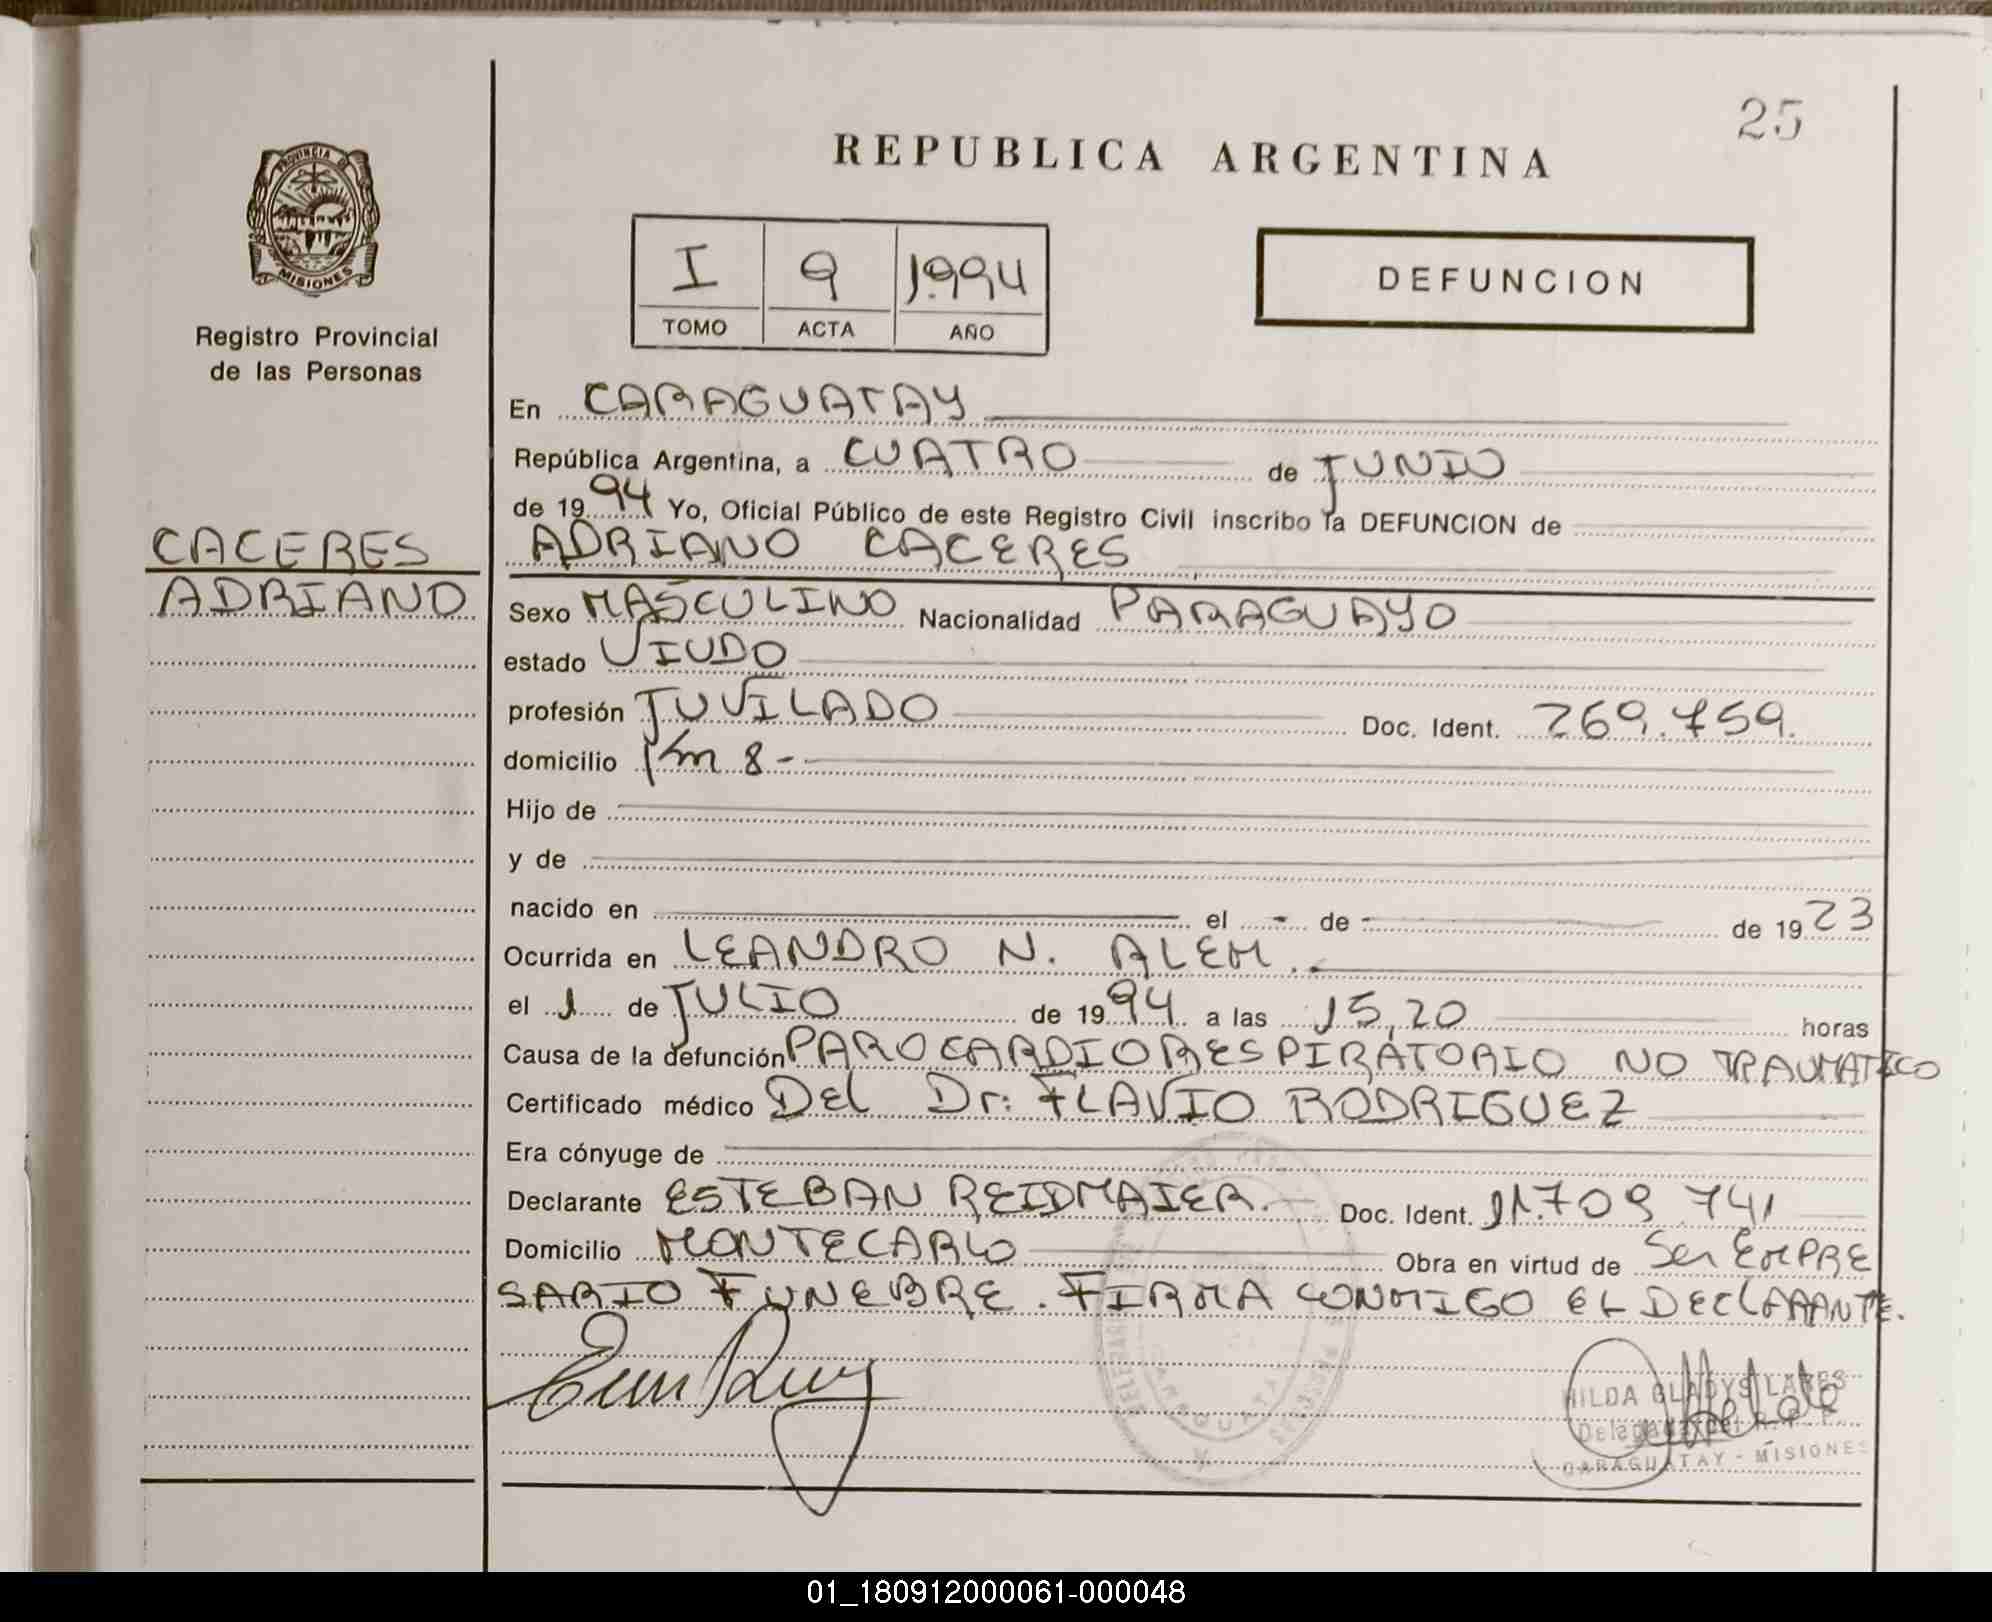 25
REPUBLICA ARGENTINA
PROVINCIA DE
MISIONES
Registro Provincial
de las Personas
I 9 1.994
TOMO ACTA AÑO
DEFUNCION
En CARAGUATAY
República Argentina, a CUATRO de JUNIO
de 19 94 Yo, Oficial Público de este Registro Civil inscribo la DEFUNCION de
CACERES
ADRIANO
ADRIANO CACERES
Sexo MASCULINO Nacionalidad PARAGUAYO
estado VIUDO
profesión JUVILADO Doc. Ident. 269.759.
domicilio Km 8-
Hijo de
y de
nacido en el - de de 19 23
Ocurrida en LEANDRO N. ALEM.
el 1 de JULIO de 19 94 a las 15,20 horas
Causa de la defunción PARO CARDIORESPIRATORIO NO TRAUMATICO
Certificado médico DEL Dr: FLAVIO RODRIGUEZ
Era cónyuge de
Declarante ESTEBAN REIDMAIER. Doc. Ident. 11.709.741
Domicilio MONTECARLO Obra en virtud de Ser EMPRE
SARIO FUNEBRE. FIRMA CONMIGO EL DECLARANTE.
HILDA GLADYS
CARAGUATAY - MISIONES
01_180912000061-000048